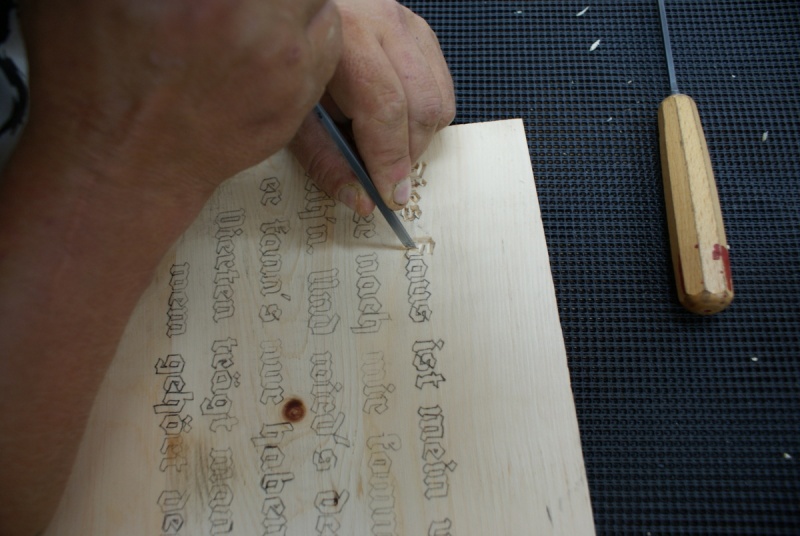 Haus ist mein
nach mir
Und wird's
er kann's nur haben
Vierten trägt man
wem gehört